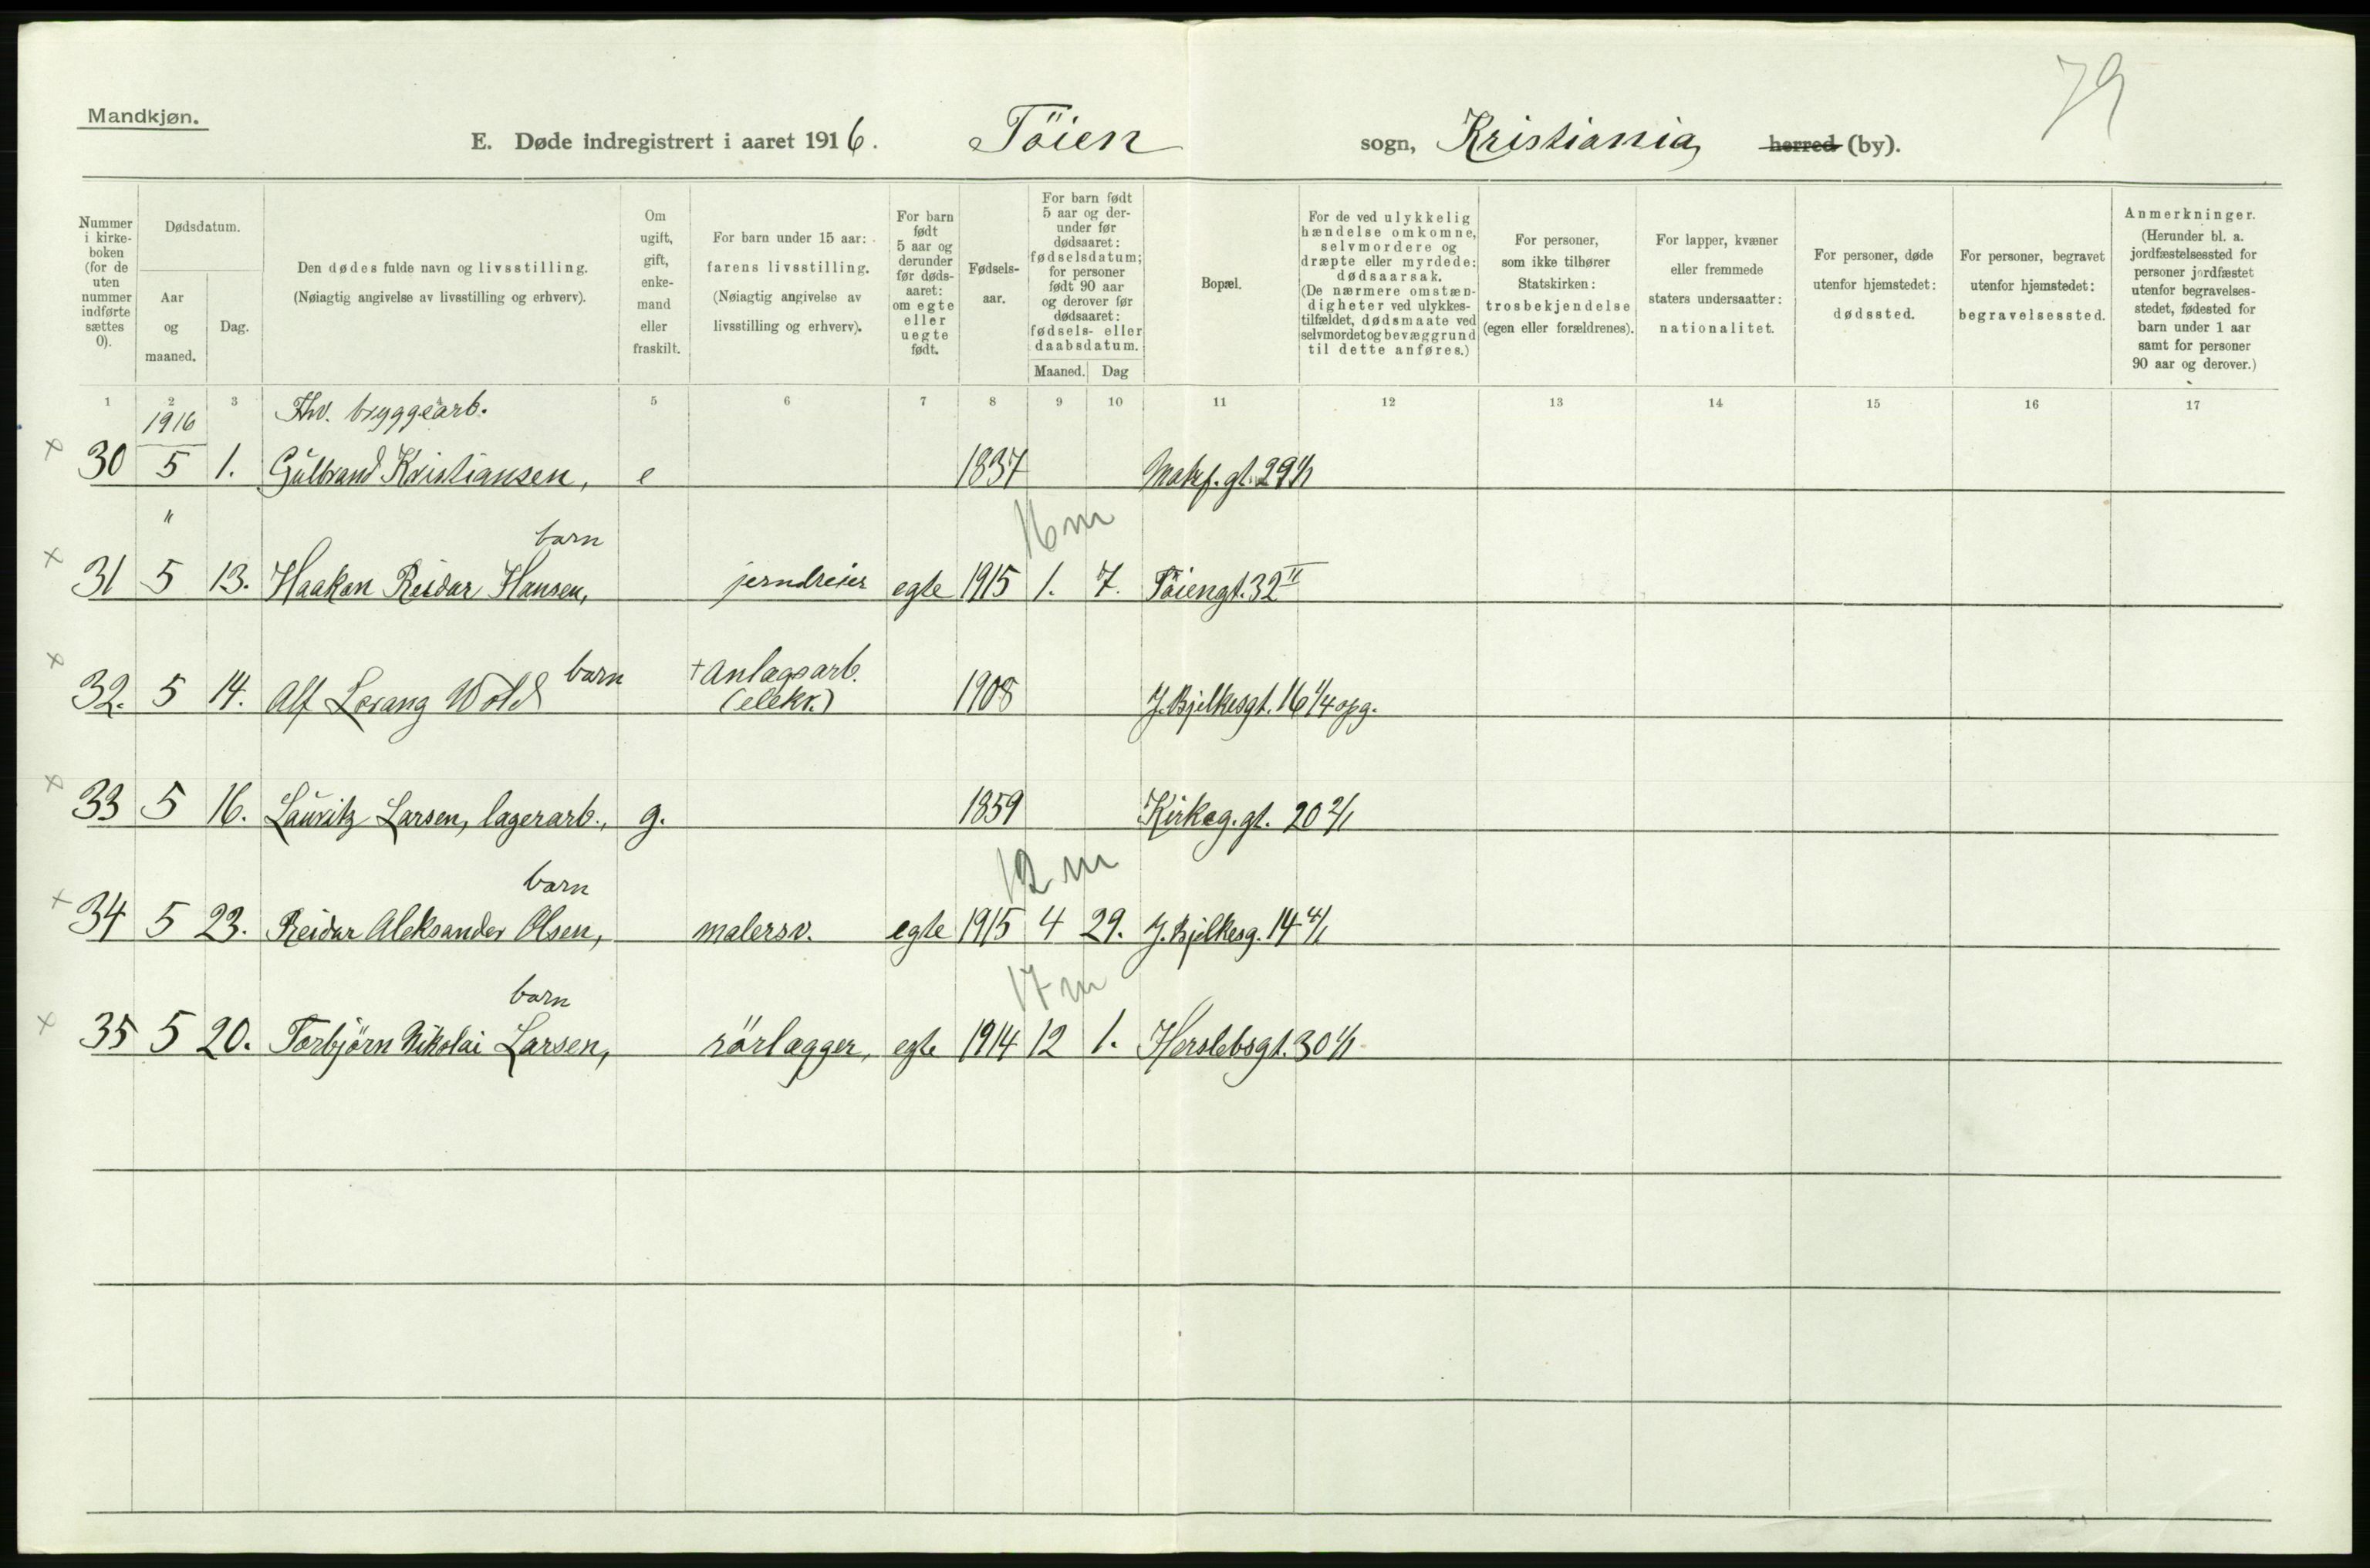 79
Mandkjøn.
E. Døde indregistrert i aaret 1916. Töien sogn, Kristiania herred (by).
Nummer i kirkeboken (for de uten nummer indførte sættes 0).
Dødsdatum.
Aar og maaned.
Dag.
Den dødes fulde navn og livsstilling. (Nøiagtig angivelse av livsstilling og erhverv).
Om ugift, gift, enkemand eller fraskilt.
For barn under 15 aar: farens livsstilling. (Nøiagtig angivelse av livsstilling og erhverv).
For barn født 5 aar og derunder før dødsaaret: om egte eller uegte født.
Fødselsaar.
For barn født 5 aar og derunder før dødsaaret: fødselsdatum; for personer født 90 aar og derover før dødsaaret: fødsels- eller daabsdatum.
Maaned. Dag
Bopæl.
For de ved ulykkelig hændelse omkomne, selvmordere og dræpte eller myrdede: dødsaarsak. (De nærmere omstændigheter ved ulykkestilfældet, dødsmaate ved selvmordet og bevæggrund til dette anføres.)
For personer, som ikke tilhører Statskirken: trosbekjendelse (egen eller forældrenes).
For lapper, kvæner eller fremmede staters undersaatter: nationalitet.
For personer, døde utenfor hjemstedet: dødssted.
For personer, begravet utenfor hjemstedet: begravelsessted.
Anmerkninger. (Herunder bl. a. jordfæstelsessted for personer jordfæstet utenfor begravelsesstedet, fødested for barn under 1 aar samt for personer 90 aar og derover.)
1 2 3 4 5 6 7 8 9 10 11 12 13 14 15 16 17
1916 Fhv. byggearb.
× 30 5 1. Gulbrand Kristiansen, e 1837 gt. 29
" barn 16 m
× 31 5 13. Haakon Reidar Hansen, jerndreier egte 1915 1. 7. Töiengt. 32 II
barn + Anlagsarb.
× 32. 5 14. Alf Lorang Wold (elekr.) 1908 J. Bjelkesgt. 16 1/4 opg.
× 33 5 16. Lauritz Larsen, lagerarb., g. 1859 Kirkeg. gt. 20 2/1
barn 12 m
× 34 5 23. Reidar Aleksander Olsen, malersv. egte 1915 4 29. J. Bjelkesg. 14 4/1
barn 17 m
× 35 5 20. Torbjörn Nikolai Larsen, rörlægger, egte 1914 12 1. Herslebsgt. 30 1/1